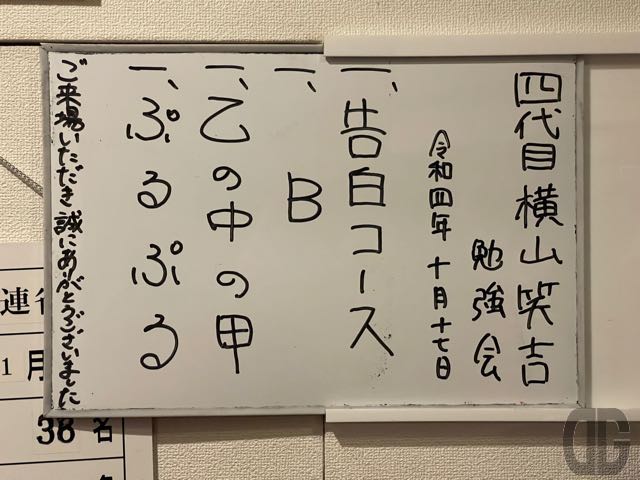 四代目横山笑吉
勉強会
令和四年 十月十七日
一、告白コース
一、B
一、乙の中の甲
一、ぷるぷる
ご来場いただき誠にありがとうございました
1月
38名
DG